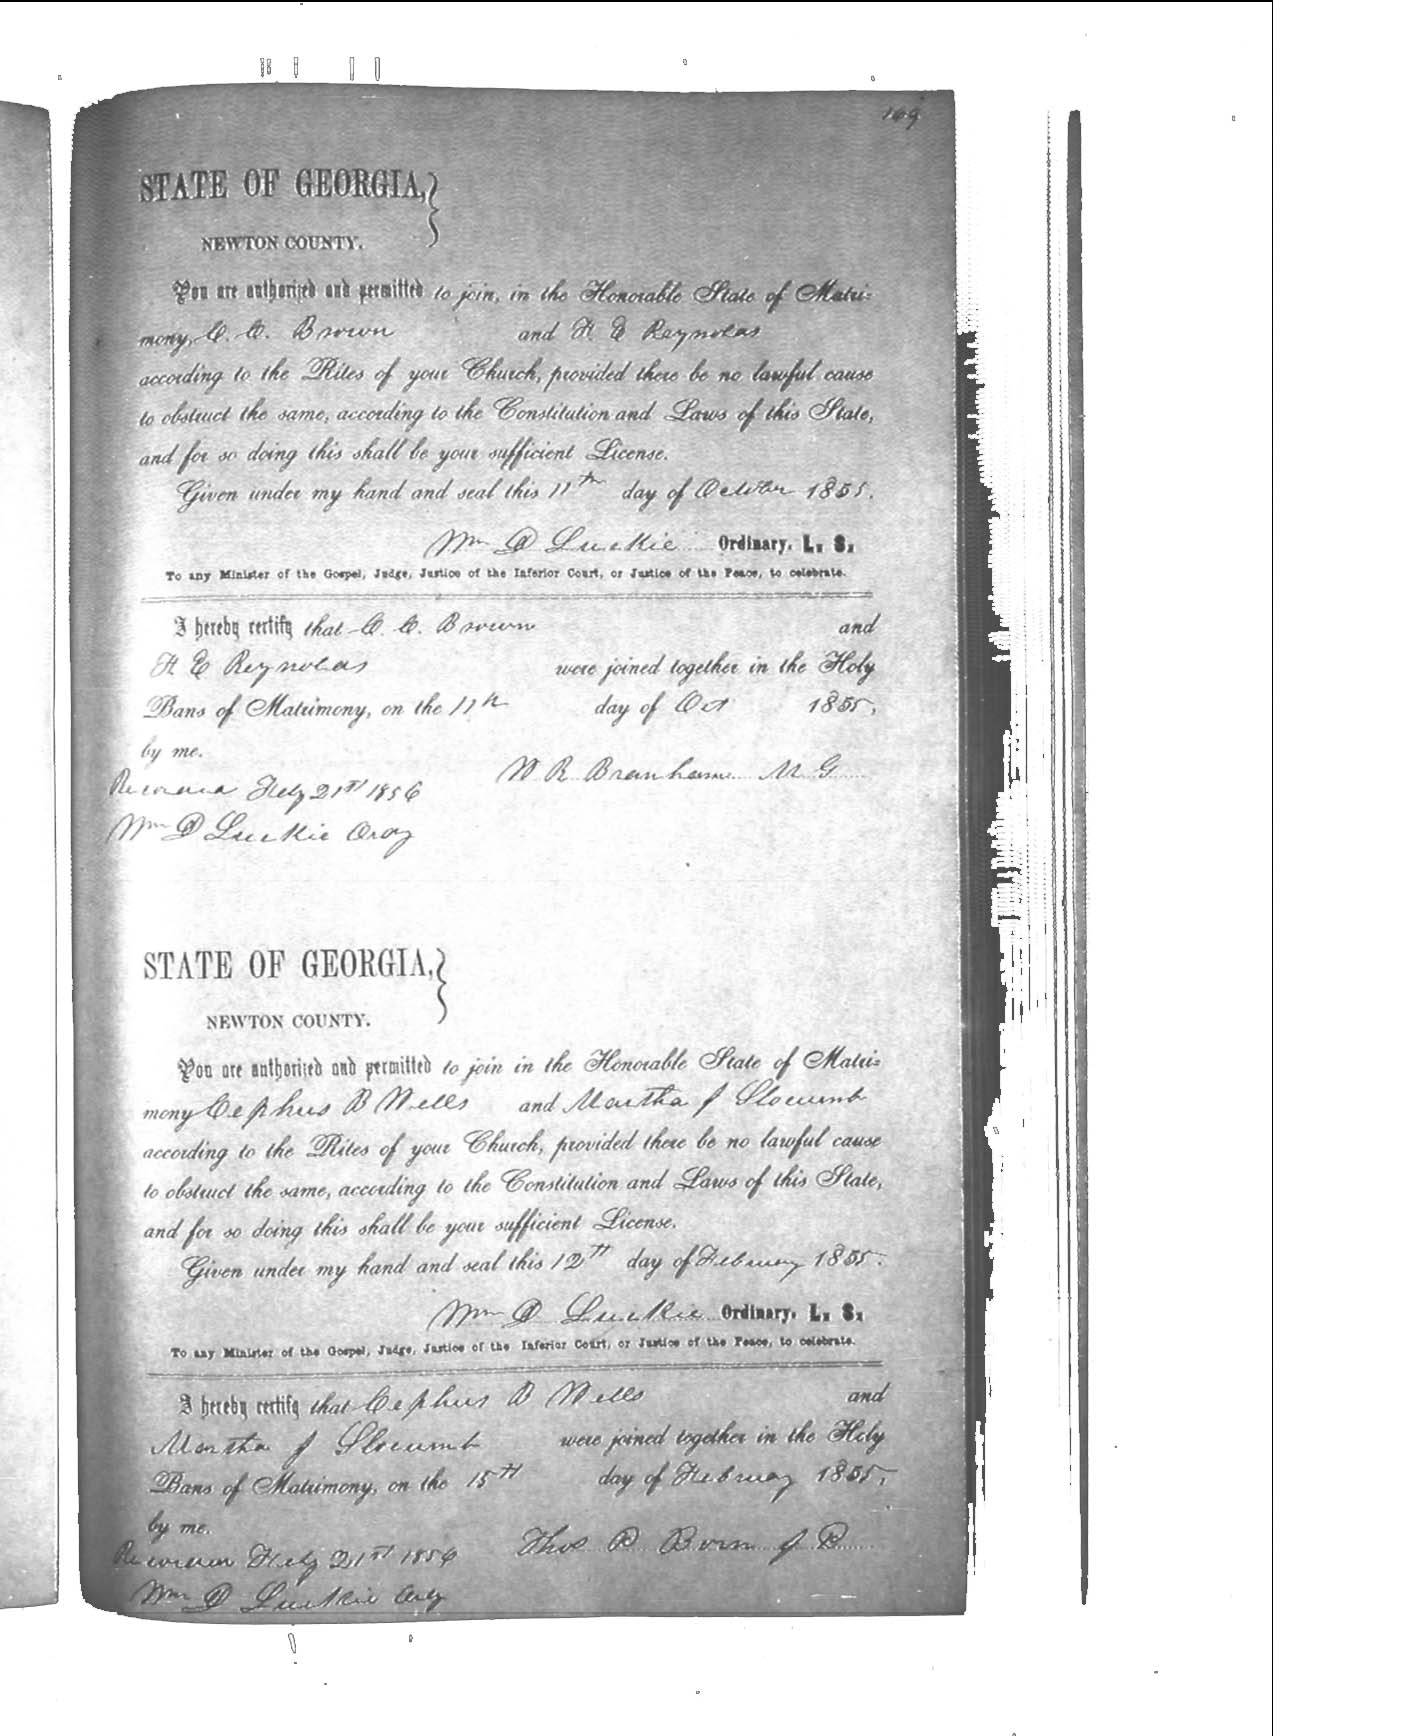 169
STATE OF GEORGIA,
NEWTON COUNTY.
You are authorized and permitted to join, in the Honorable State of Matri-
mony, C. C. Brown and F. E Reynolds
according to the Rites of your Church, provided there be no lawful cause
to obstruct the same, according to the Constitution and Laws of this State,
and for so doing this shall be your sufficient License.
Given under my hand and seal this 11th day of October 1855.
Wm D Luckie Ordinary. L. S.
To any Minister of the Gospel, Judge, Justice of the Inferior Court, or Justice of the Peace, to celebrate.
I hereby certify that C. C. Brown and
F E Reynolds were joined together in the Holy
Bans of Matrimony, on the 11th day of Oct 1855,
by me.
W R Branham M G
Recorded Feby 21st 1856
Wm D Luckie Ordy
STATE OF GEORGIA,
NEWTON COUNTY.
You are authorized and permitted to join in the Honorable State of Matri-
mony Cephus B Wells and Martha J Slocumb
according to the Rites of your Church, provided there be no lawful cause
to obstruct the same, according to the Constitution and Laws of this State,
and for so doing this shall be your sufficient License.
Given under my hand and seal this 12th day of February 1855.
Wm D Luckie Ordinary. L. S.
To any Minister of the Gospel, Judge, Justice of the Inferior Court, or Justice of the Peace, to celebrate.
I hereby certify that Cephus B Wells and
Martha J Slocumb were joined together in the Holy
Bans of Matrimony, on the 15th day of February 1855,
by me.
Thos B Born J P
Recorded Feby 21st 1856
Wm D Luckie Ordy